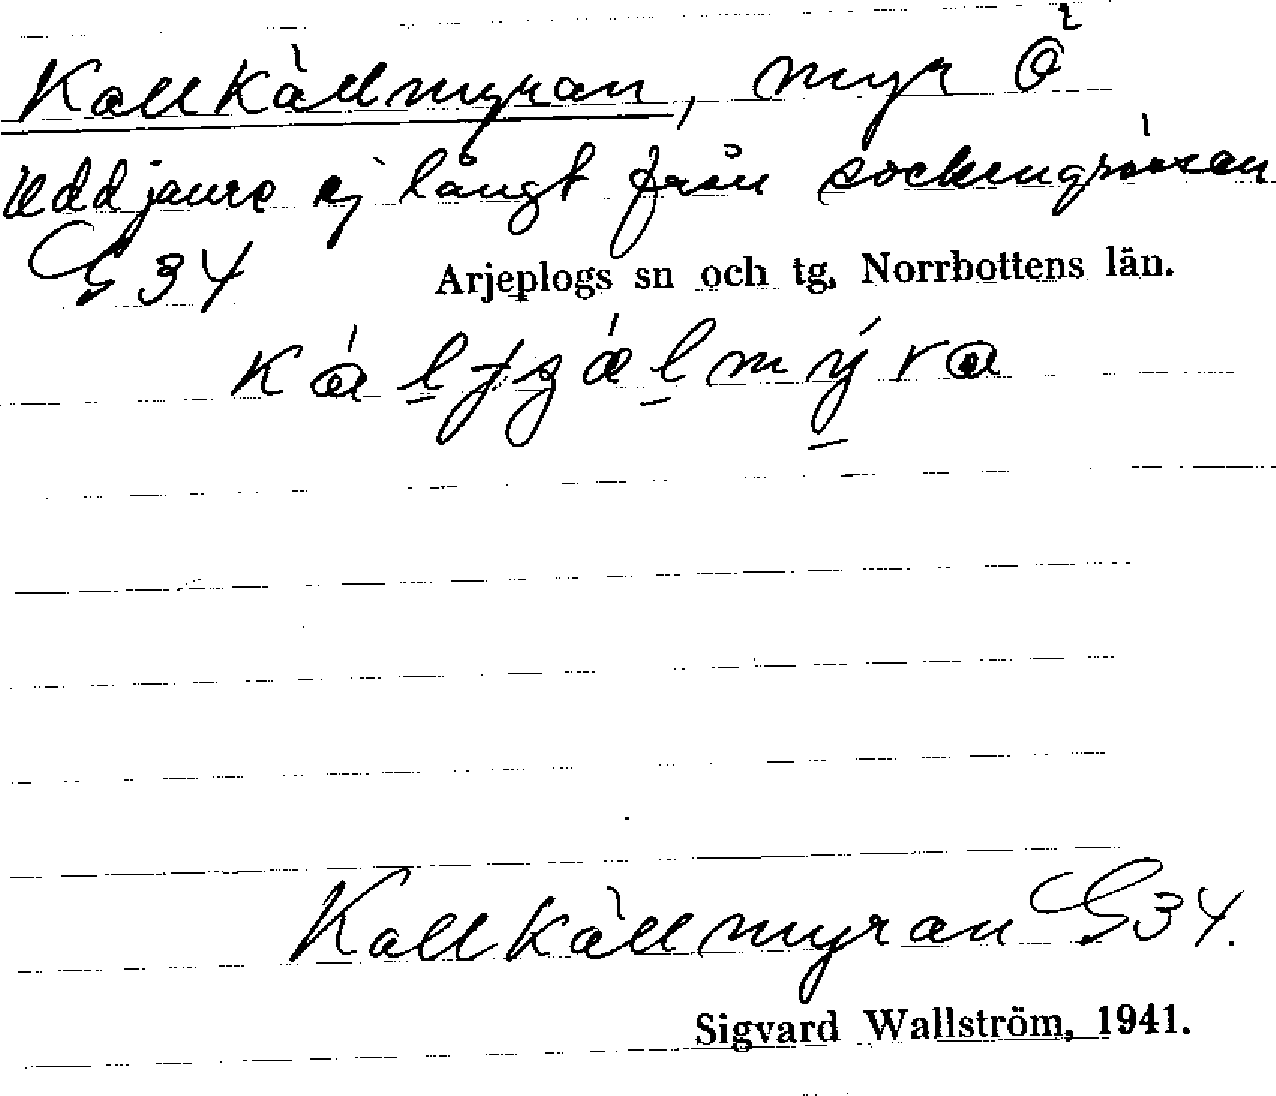 Kallkällmyran, myr Ö
Uddjaure ej långt från sockengränsen
G34
Arjeplogs sn och tg. Norrbottens län.
Kallkällmyran G34.
Sigvard Wallström, 1941.